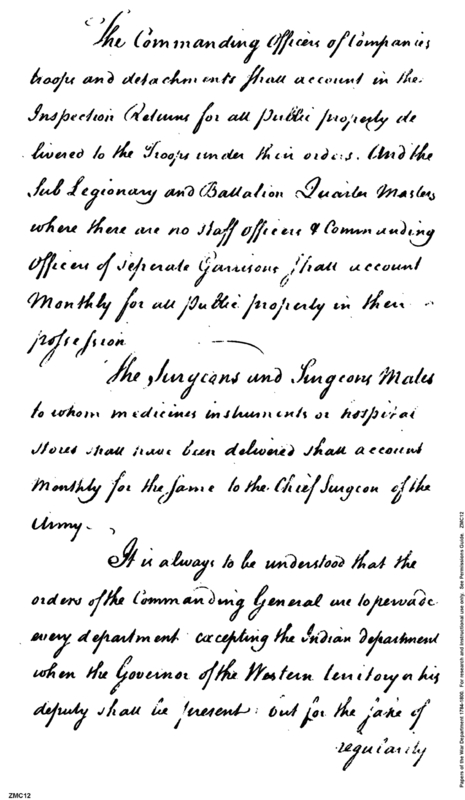 The Commanding Officers of Companies
troops and detachments shall account in the
Inspection Returns for all public property de
livered to the Troops under their orders. And the
Sub Legionary and Battalion Quarter Masters
where there are no staff officers & Commanding
Officers of seperate Garrisons shall account
Monthly for all public property in their
possession
The Surgeons and Surgeons Mates
to whom medicines instruments or hospital
stores shall have been delivered shall account
Monthly for the same to the Chief Surgeon of the
Army.
It is always to be understood that the
orders of the Commanding General are to pervade
every department excepting the Indian department
when the Governor of the Western territory or his
deputy shall be present: but for the sake of
regularity
ZMC12
Papers of the War Department 1784-1800. For research and instructional use only. See Permissions Guide. ZMC12